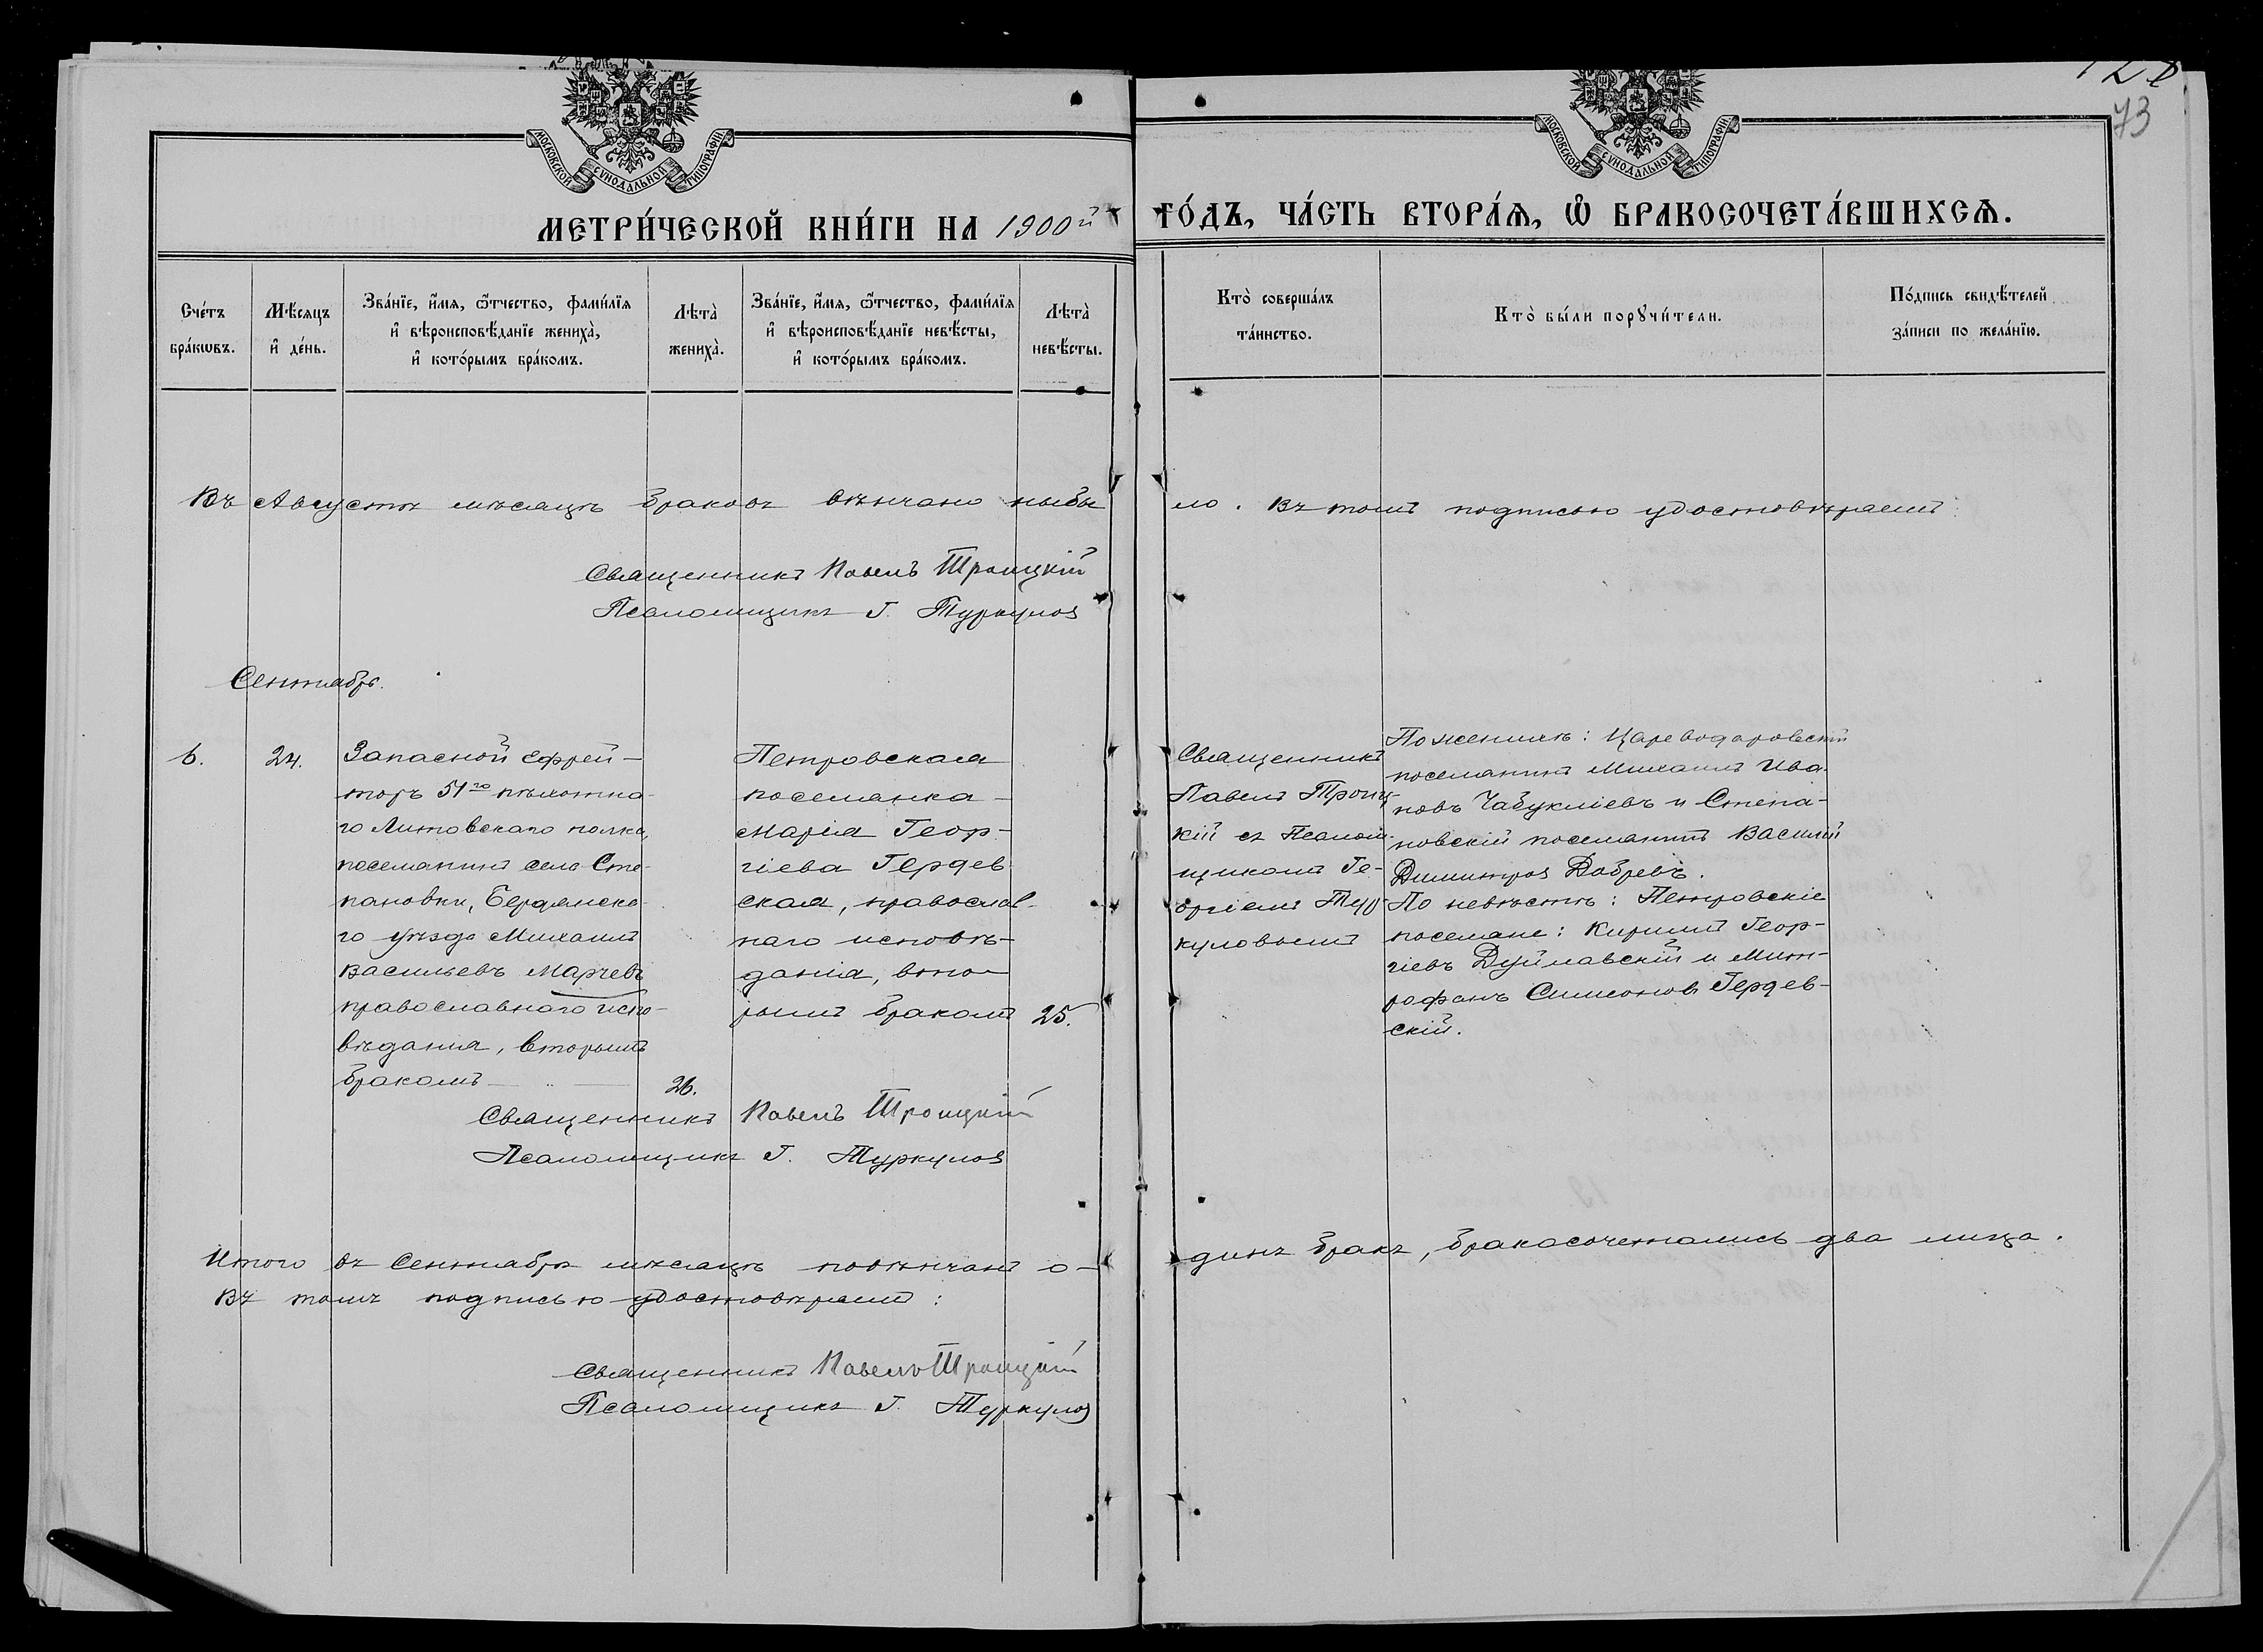 128
73
МОСКОВСКОЙ СѴНОДАЛЬНОЙ ТИПОГРАФІИ
МОСКОВСКОЙ СѴНОДАЛЬНОЙ ТИПОГРАФІИ
МЕТРИ́ЧЕСКОЙ КНИ́ГИ НА 1900й
ГО́ДЪ, ЧА́СТЬ ВТОРА́Ѧ, Ѽ БРАКОСОЧЕТА́ВШИХСѦ.
Сче́тъ
бра́кѡвъ.
Мѣ́сѧцъ
и҆ де́нь.
Зва́нїе, и҆́мѧ, ѻ҆́тчество, фами́лїѧ
и҆ вѣроисповѣ́данїе жениха̀,
и҆ кото́рымъ бра́комъ.
Лѣта̀
жениха̀.
Зва́нїе, и҆́мѧ, ѻ҆́тчество, фами́лїѧ
и҆ вѣроисповѣ́данїе невѣ́сты,
и҆ кото́рымъ бра́комъ.
Лѣта̀
невѣ́сты.
Кто̀ соверша́лъ
та́инство.
Кто̀ бы́ли порꙋчи́тели.
По́дпись свидѣ́телей
за́писи по жела́нїю.
Въ Августѣ мѣсяцѣ браковъ вѣнчано небы
ло. Въ томъ подписью удостовѣряемъ:
Священникъ Павелъ Троицкій
Псаломщикъ Г. Туркулов
Сентябрь.
6.
24.
Запасной ефрей-
торъ 51го пѣхотна-
го Литовскаго полка,
поселянинъ села Сте-
пановки, Бердянска-
го уѣзда Михаилъ
Васильевъ Марчевъ
православнаго испо-
вѣдания, вторымъ
бракомъ
26.
Петровская
поселянка
Марія Геор-
гіева Гердев
ская, православ-
наго исповѣ-
данія, вто-
рымъ бракомъ
25.
Священникъ
Павелъ Троиц-
кій съ Псалом-
щикомъ Ге-
оргіемъ Тур-
куловымъ
По женихѣ: Цареводаровскій
поселянинъ Михаилъ Ива-
новъ Чабукліевъ и Степа-
новскій поселянинъ Василій
Димитров Добревъ.
По невѣстѣ: Петровскіе
поселяне: Кирилъ Геор-
гіевъ Дуйлавскій и Мит-
рофанъ Симеонов Гердев-
скій.
Священникъ Павелъ Троицкій
Псаломщикъ Г. Туркулов
Итого въ Сентябрѣ мѣсяцѣ повѣнчанъ о-
динъ бракъ, бракосочетались два лица.
Въ томъ подписью удостовѣряемъ:
Священникъ Павелъ Троицкій
Псаломщикъ Г. Туркулов